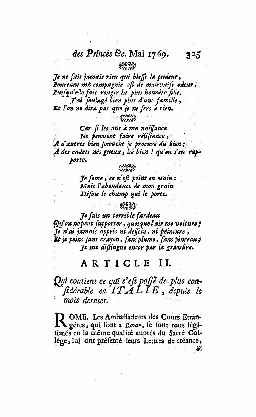 des Princes &c. Mai 1769. 325
Je ne fais jamais rien qui blesse la pudeur,
Pourtant ma compagnie est de mauvaise odeur;
Puisqu'elle fait rougir la plus honnête fille.
J'ai soulagé bien plus d'une famille,
Et l'on ne dira pas que je ne sers à rien.
Car si les uns à ma naissance
Ne peuvent faire résistance,
A d'autres bien souvent je procure du bien;
A des cadets nés gueux, hé bien! qu'on s'en rap-
porte.
Je seme, ce n'est point en vain:
Mais l'abondance de mon grain
Désole le champ qui le porte.
Je suis un terrible fardeau
Qu'on ne peut supporter, quoique l'air me voiture;
Je n'ai jamais appris ni dessein, ni peinture,
Et je peins sans crayon, sans plume, sans pinceau;
Je me distingue encor par la gravûre.
ARTICLE II.
Qui contient ce qui s'est passé de plus con-
sidérable en ITALIE, depuis le
mois dernier.
ROME. Les Ambassadeurs des Cours Etran-
géres, qui sont à Rome, se sont tous légi-
timés en la même qualité auprès du Sacré Col-
lége, lui ont présenté leurs Lettres de créance,
&